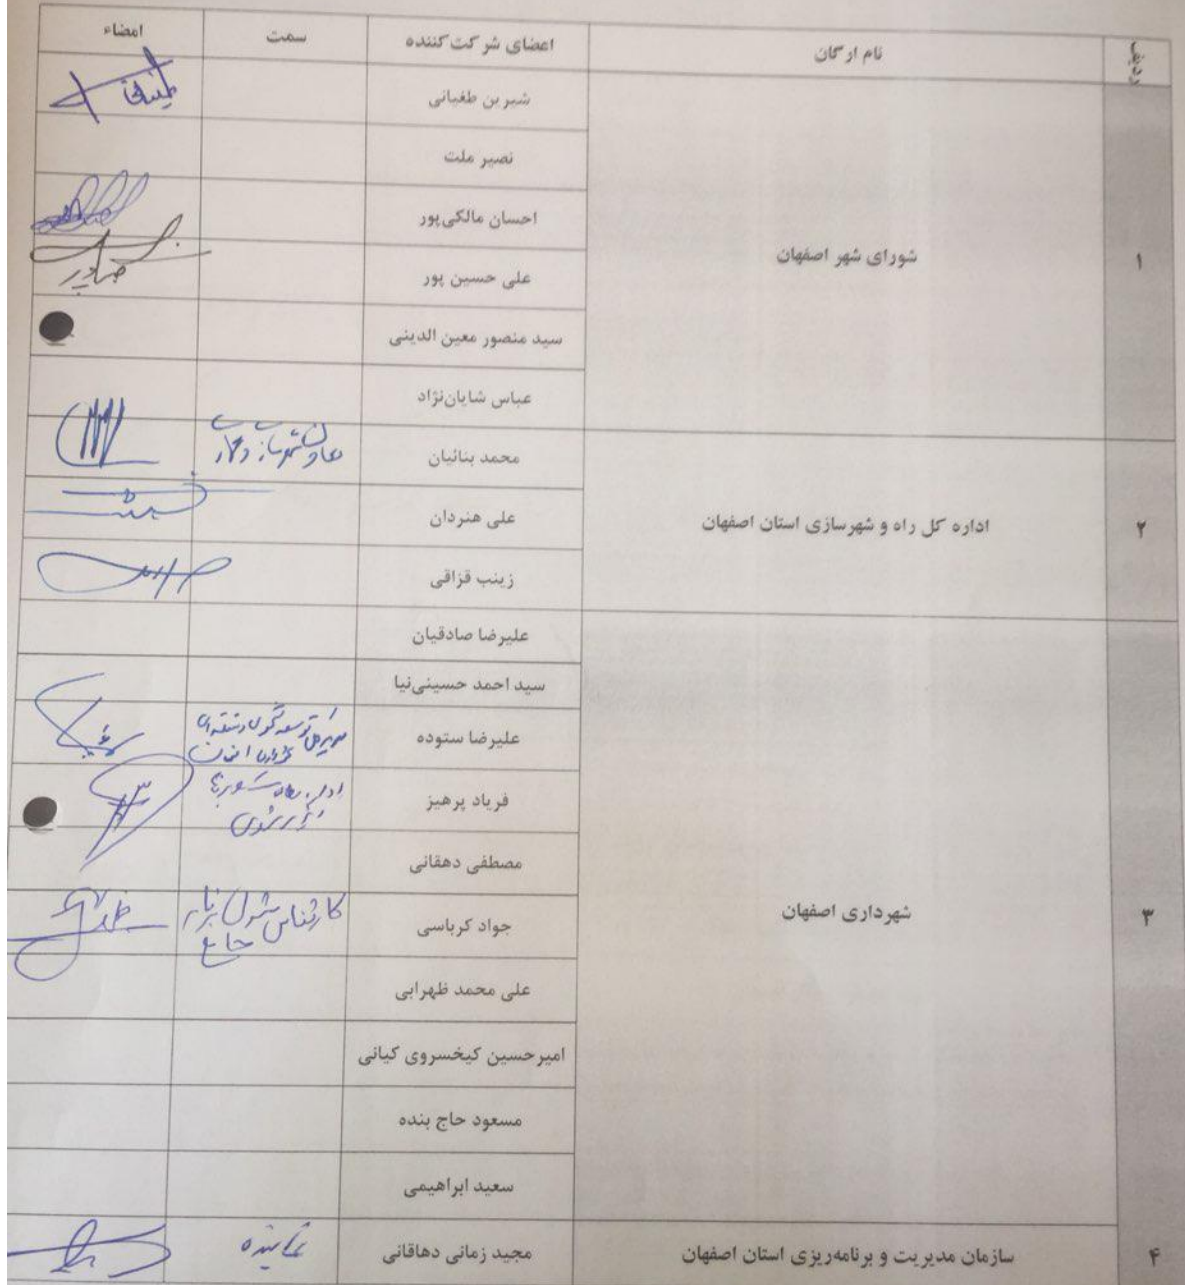 ردیف
نام ارگان
اعضای شرکت‌کننده
سمت
امضاء
۱
شورای شهر اصفهان
شیرین طغیانی
نصیر ملت
احسان مالکی‌پور
علی حسین پور
سید منصور معین الدینی
عباس شایان‌نژاد
۲
اداره کل راه و شهرسازی استان اصفهان
محمد بنائیان
علی هنردان
زینب قزاقی
۳
شهرداری اصفهان
علیرضا صادقیان
سید احمد حسینی‌نیا
علیرضا ستوده
فریاد پرهیز
مصطفی دهقانی
جواد کرباسی
کارشناس
جامع
علی محمد ظهرابی
امیرحسین کیخسروی کیانی
مسعود حاج بنده
سعید ابراهیمی
۴
سازمان مدیریت و برنامه‌ریزی استان اصفهان
مجید زمانی دهاقانی
نماینده